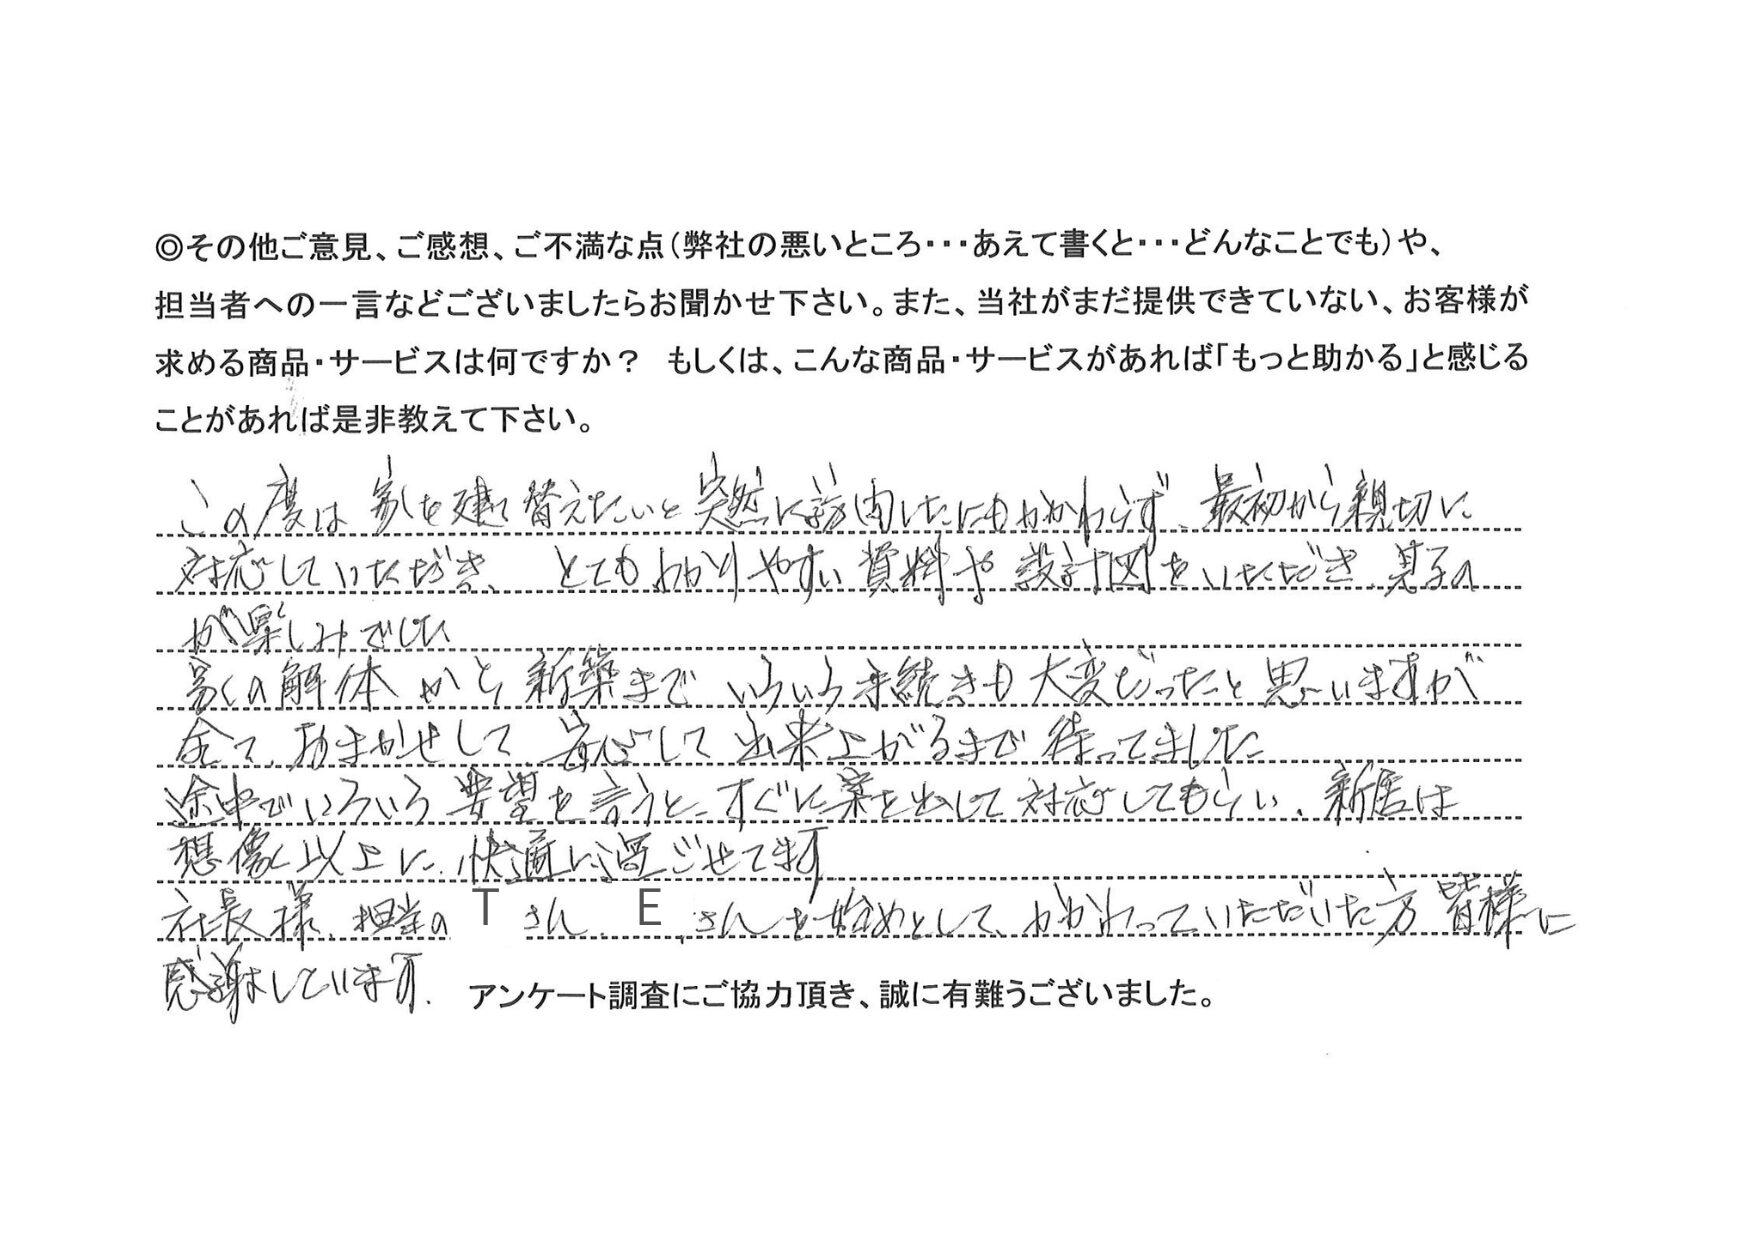 ◎その他ご意見、ご感想、ご不満な点(弊社の悪いところ・・・あえて書くと・・・どんなことでも)や、
担当者への一言などございましたらお聞かせ下さい。また、当社がまだ提供できていない、お客様が
求める商品・サービスは何ですか？ もしくは、こんな商品・サービスがあれば「もっと助かる」と感じる
ことがあれば是非教えて下さい。
この度は 家を建て替えたいと突然に訪問したにもかかわらず、最初から親切に
対応していただき、とてもわかりやすい資料や設計図をいただき、見るの
が楽しみでした
家の解体から新築まで いろいろ手続きも大変だったと思いますが
全て、おまかせして 安心して出来上がるまで待ってました
途中でいろいろ要望を言うと、すぐに案を出して対応してもらい、新居は
想像以上に、快適に過ごせてます
社長様、担当の T さん、E さんを始めとして、かかわっていただいた方 皆様に
感謝しています。 アンケート調査にご協力頂き、誠に有難うございました。